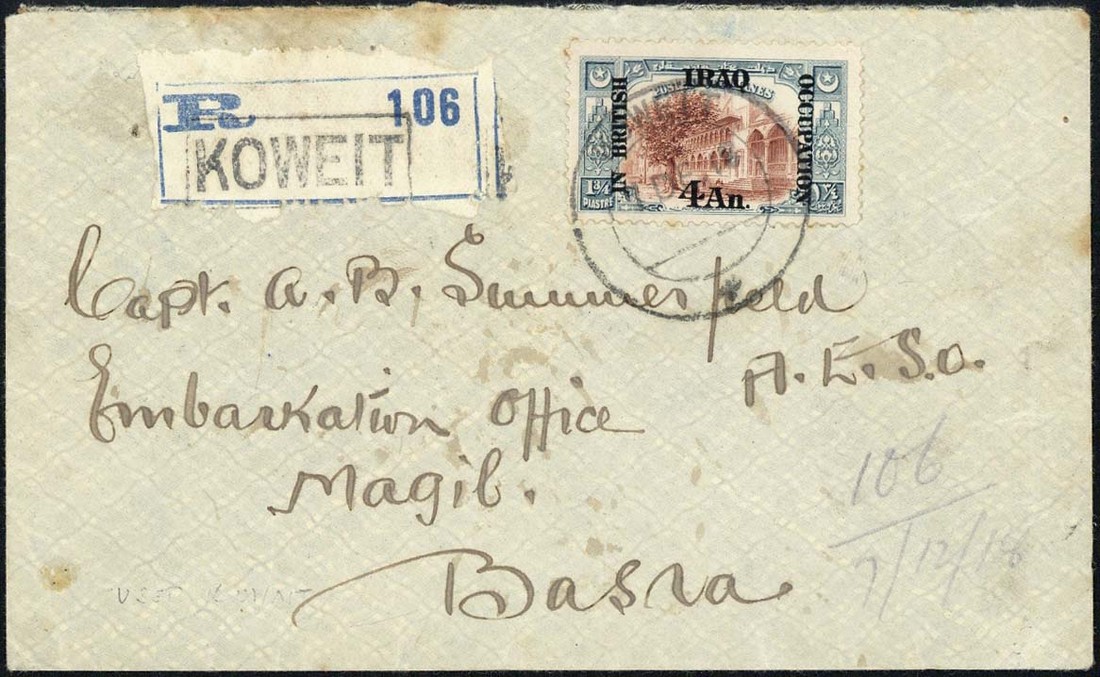 R 106
KOWEIT
IRAQ
POSTES OTTOMANES
IN BRITISH
OCCUPATION
4 An.
1¾
PIASTRE
1¾
Capt. A. B. Summerfield
A. E. S. O.
Embarkation Office
Magil.
Basra
106
7/12/18
USED KUWAIT